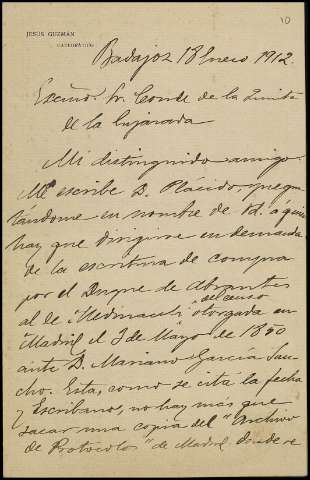 10
JESÚS GUZMÁN
CATEDRÁTICO
Badajoz 18 Enero 1912.
Excmo. Sr. Conde de la Quinta
de la Enjarada
Mi distinguido amigo:
Me escribe D. Plácido,
tándome en nombre de Vd. á quien
hay que dirigirse en demanda
de la escritura de compra
por el Duque de Abrantes
al de Medinaceli de censo otorgada en
Madrid el 3 de Mayo de 1850
ante D. Mariano García San-
cho. Esta, como se cita la fecha
y Escribano, no hay más que
sacar una copia del "Archivo
de Protocolos" de Madrid donde se